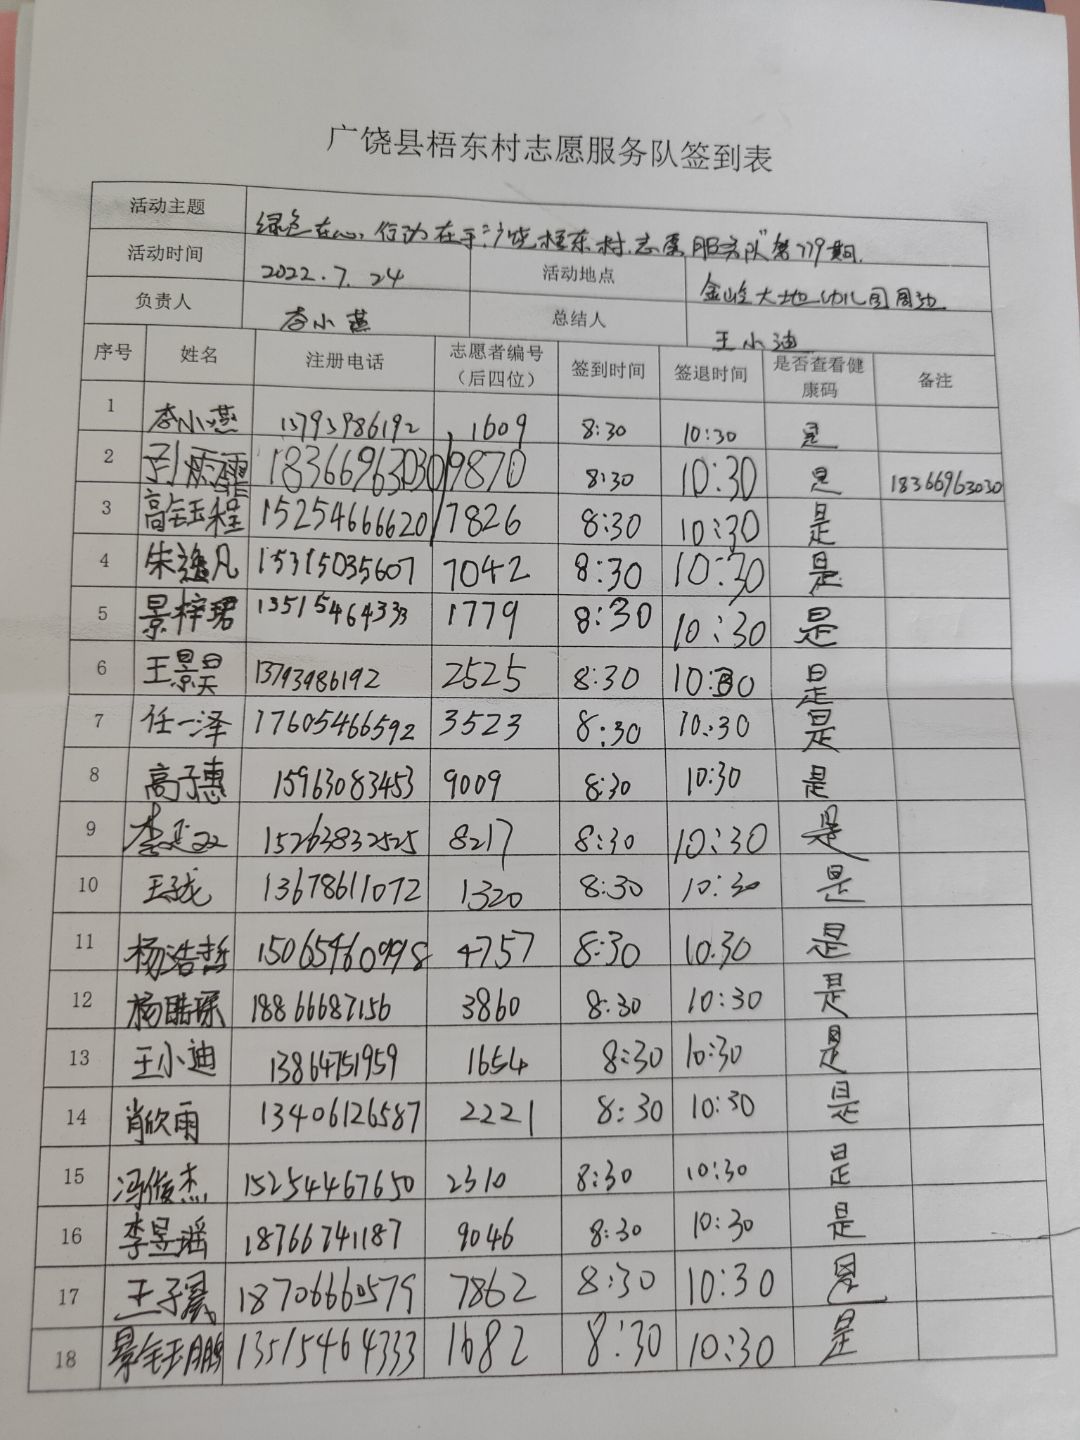 广饶县梧东村志愿服务队签到表
活动主题 绿色在心,行动在手"广饶梧东村志愿服务队"第779期.
活动时间 2022.7.24 活动地点 金岭大地幼儿园周边
负责人 李小燕 总结人 王小迪
序号 姓名 注册电话 志愿者编号(后四位) 签到时间 签退时间 是否查看健康码 备注
1 李小燕 13793986192 1609 8:30 10:30 是
2 刘雨霏 18366963030 9870 8:30 10:30 是 18366963030
3 高钰程 15254666620 7826 8:30 10:30 是
4 朱逸凡 15315035607 7042 8:30 10:30 是
5 景梓珺 13515464333 1779 8:30 10:30 是
6 王景昊 13793986192 2525 8:30 10:30 是
7 任一泽 17605466592 3523 8:30 10:30 是
8 高子惠 15963083453 9009 8:30 10:30 是
9 15263832525 8217 8:30 10:30 是
10 13678611072 1320 8:30 10:30 是
11 杨浩哲 4757 8:30 10:30 是
12 杨皓琛 18866687156 3860 8:30 10:30 是
13 王小迪 13864751959 1654 8:30 10:30 是
14 肖欣雨 13406126587 2221 8:30 10:30 是
15 冯俊杰 15254467650 2310 8:30 10:30 是
16 李昱瑶 18766741187 9046 8:30 10:30 是
17 18706660579 7862 8:30 10:30 是
18 景钰鹏 13515464333 1682 8:30 10:30 是